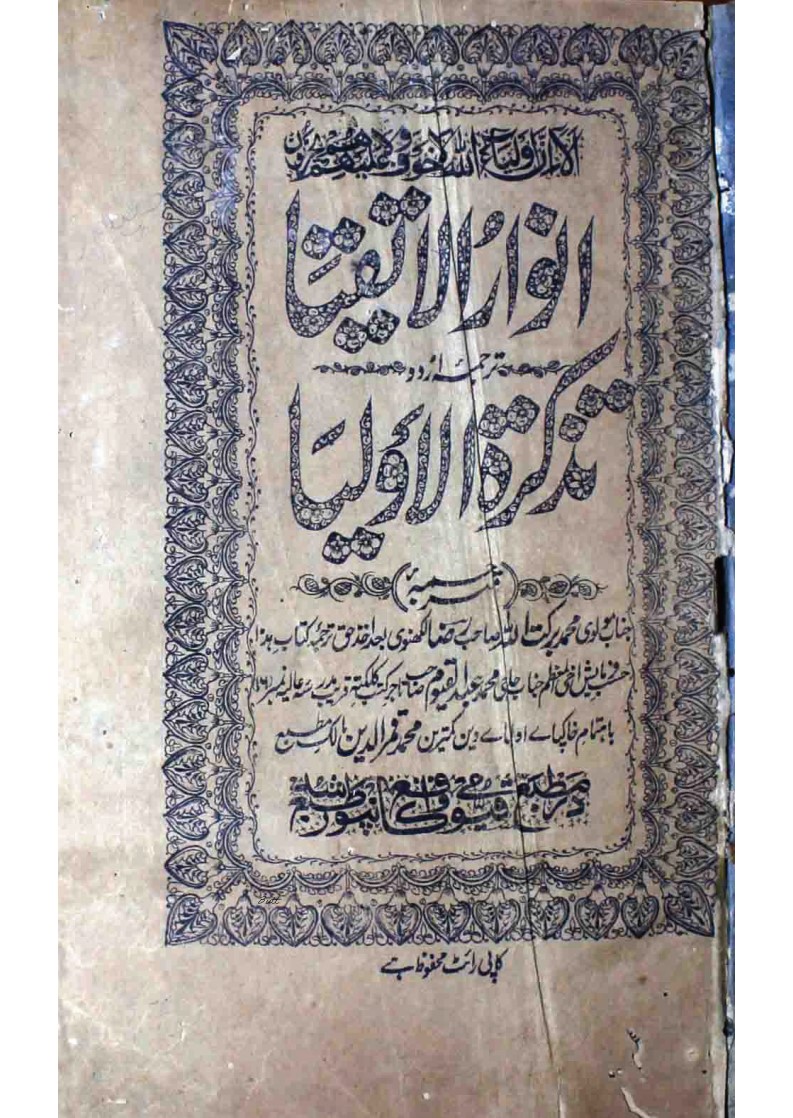 الا ان اولیاء اللہ لا خوف علیھم ولا ھم یحزنون
انوار الاتقیا
ترجمۂ اردو
تذکرۃ الاولیا
مترجمہ
جناب مولوی محمد برکت اللہ صاحب رضا لکھنوی بعد اخذ حق ترجمۂ کتاب ہذا
حسب فرمایش اخی معظم جناب حاجی محمد عبدالقیوم صاحب تاجر کتب کلکتہ قریب مدرسہ عالیہ نمبر ۱۶
باہتمام خاکپاے اولیاے دین کمترین محمد قمرالدین مالک مطبع
در مطبع قیومی واقع کانپور طبع شد
کاپی رائٹ محفوظ ہے